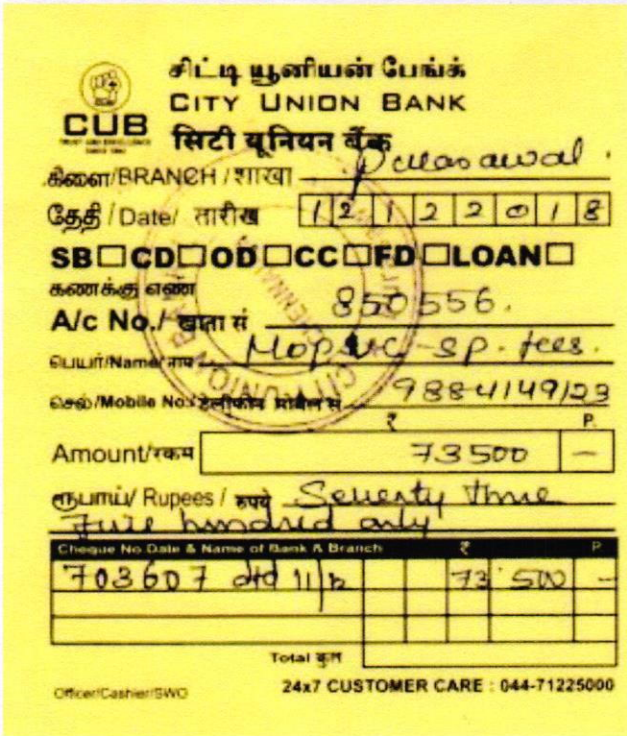 சிட்டி யூனியன் பேங்க்
CITY UNION BANK
CUB
TRUST AND EXCELLENCE
SINCE 1904
सिटी यूनियन बैंक
கிளை/BRANCH/शाखा
தேதி/Date/ तारीख 12122018
SB CD OD CC FD LOAN
கணக்கு எண்
A/c No./ खाता सं 850556.
பெயர்/Name/नाम MOPVC - SP. fees.
செல்/Mobile No./टेलीफोन मोबैल सं 9884149123
₹ P.
Amount/रकम 73500 —
ரூபாய்/ Rupees / रुपये Seventy three
Five hundred only
Cheque No.Date & Name of Bank & Branch ₹ P
703607 dtd 11/12 73 500 -
Total कुल
Officer/Cashier/SWO 24x7 CUSTOMER CARE : 044-71225000
CITY UNION BANK
CHENNAI